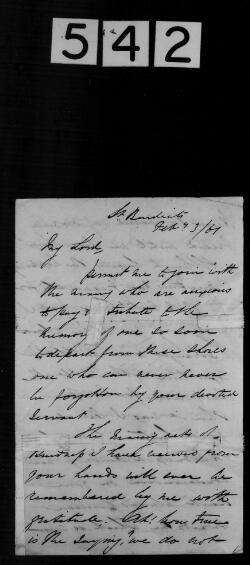 542
St Benedicts
Feb 23/61
My Lord,
permit me to join with
the many who are anxious
to pay a tribute to the
memory of one so soon
to depart from these shores
one who can never never
be forgotten by your devoted
Servant
The many acts of
kindness I have received from
your hands will ever be
remembered by me with
gratitude. Ah! how true
is the saying "we do not